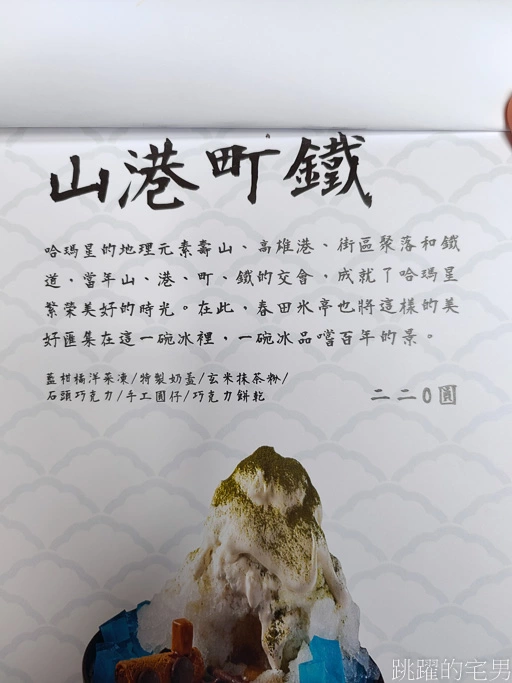 山港町鐵
哈瑪星的地理元素壽山、高雄港、街區聚落和鐵
道，當年山、港、町、鐵的交會，成就了哈瑪星
繁榮美好的時光。在此，春田氷亭也將這樣的美
好匯集在這一碗冰裡，一碗冰品嚐百年的景。
藍柑橘洋菜凍/特製奶蓋/玄米抹茶粉/
石頭巧克力/手工圓仔/巧克力餅乾
二二0圓
跳躍的宅男